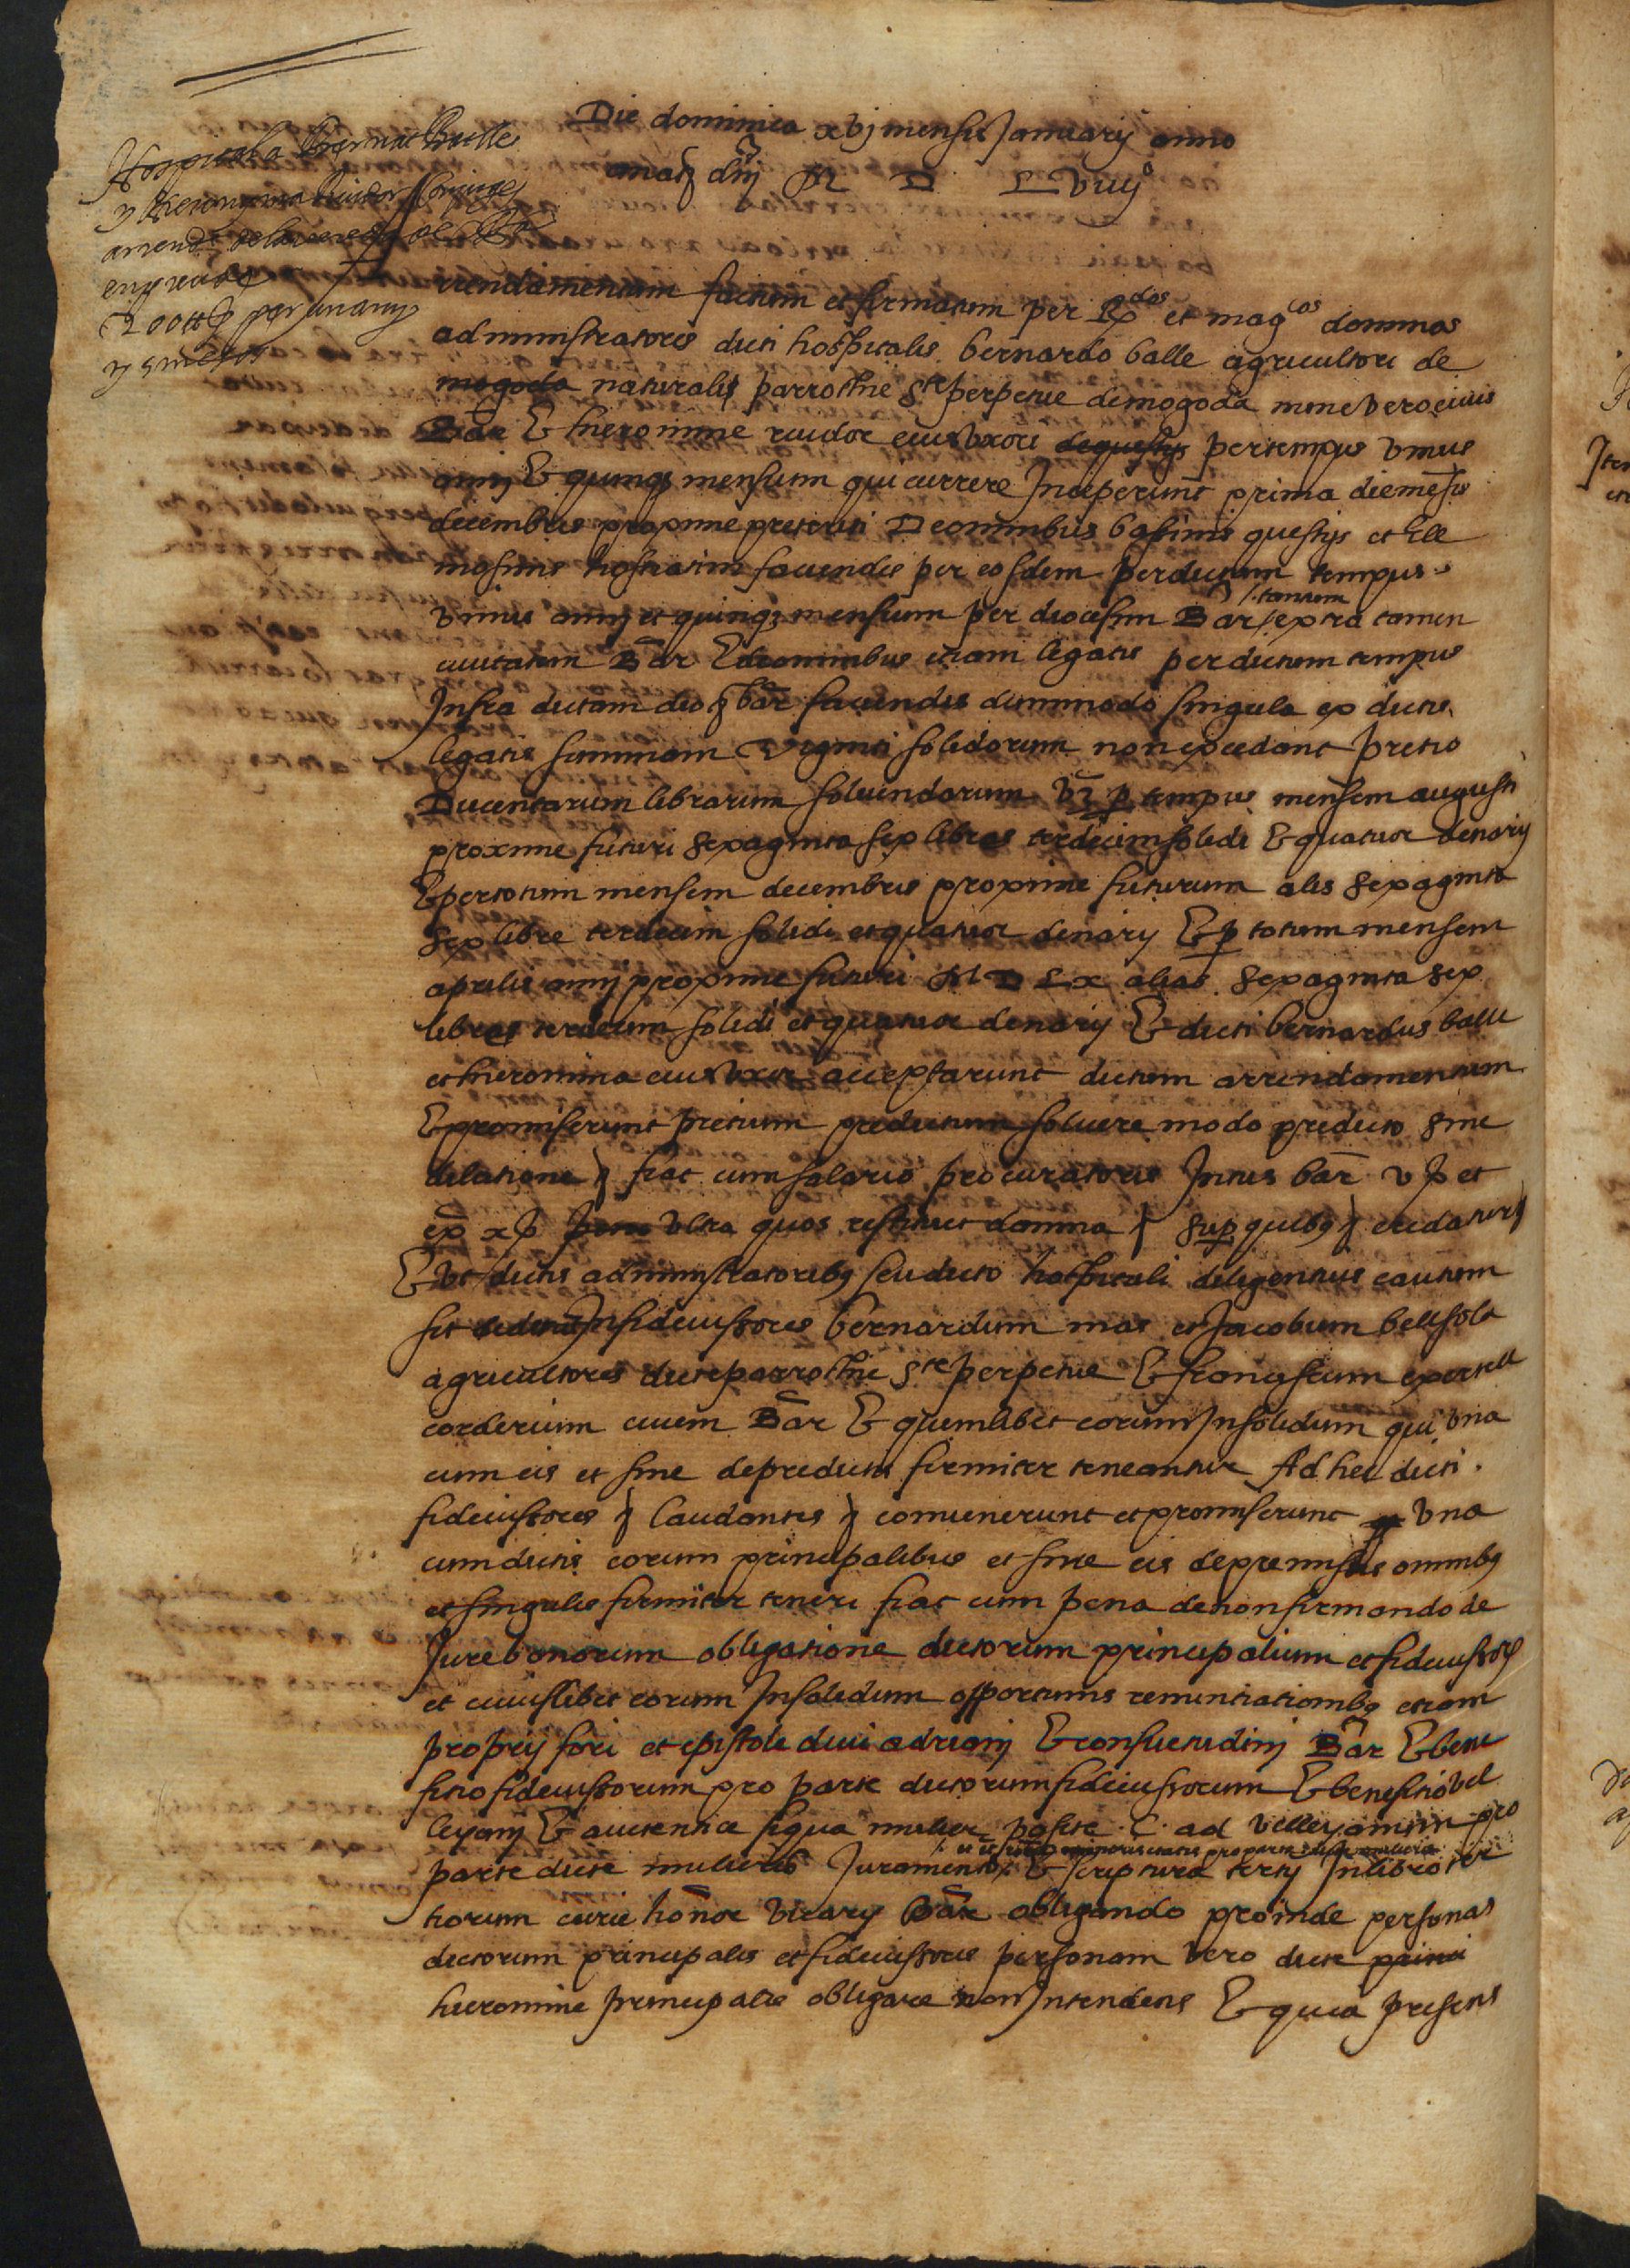 Die dominica xvj mensis Januarij anno
a nat dnj M D L viiijº
Hospitala Bernat Batlle
y Hieronyma
arrend.
200 ll per un any
y 5 mesos
Arrendamentum factum et firmatum per Rdos et magcos dominos
administratores dicti hospitalis bernardo batlle agricultori de
mogoda naturalis parrochie Ste perpetue de mogoda nunc vero civis
Bar Et hieronime ruidor eius uxori de questijs per tempus unius
anni Et quinq mensium qui currere Inceperunt prima die mesis
decembris proxime preteriti De omnibus bassinis questijs et Ele
mosinis hostiatim faciendis per eosdem per dictum tempus
unius anni et quinq mensium per diocesim Bar tantum extra tamen
civitatem Bar Et de omnibus etiam legatis per dictum tempus
Infra dictam dioc bar faciendis dummodo singula ex dictis
legatis summam viginti solidorum non excedant pretio
Ducentarum librarum solvendarum mensem augusti
proxime futuri sexaginta sex libras terdecim solidi Et quatuor denarij
Et per totum mensem decembris proxime futurum alie sexaginta
sex libre terdecim solidi et quatuor denarij Et p totum mensem
aprilis anni proxime futuri M D L x alias sexaginta sex
libras terdecim solidi et quatuor denarij Et dicti bernardus batlle
et hieronima eius uxor acceptarunt dictum arrendamentum
Et promiserunt pretium predictum solvere modo predicto sine
dilatione fiat cum salario procuratoris Intus bar v ſ et
ex x ſ ultra quos restituet damna sup quibq credatur
Et ut dictis administratoribq seu dicto hospitali diligentius cautum
sit dederunt In fideiussores bernardum mas et Jacobum bellsola
agricultores dicte parrochie Ste perpetue Et franciscum
corderium civem Bar Et quemlibet eorum Insolidum qui una
cum eis et sine de predictis firmiter teneantur Ad hec dicti
fideiussores laudantes convenerunt et promiserunt una
cum dictis eorum principalibus et sine eis de premissis omnibq
et singulis firmiter teneri fiat cum pena de non firmando de
Jure bonorum obligatione dictorum principalium et fideiussor
et cuiuslibet eorum Insolidum opportunis renuntiationibq etiam
proprij fori et epistole divi adrianj Et consuetudinj Bar Et bene
fitio fideiussorum pro parte dictorum fideiussorum Et benefitio vel
leyanj Et autentica siqua mulier posite C ad velleyanum pro
parte dicte mulieris Juramento Et scriptura tertij In libro ter
tiorum curie honor vicarij Bar obligando proinde personas
dictorum principalis et fideiussoris personam vero dicte
hieronime principalis obligare non Intendens Et quia presens